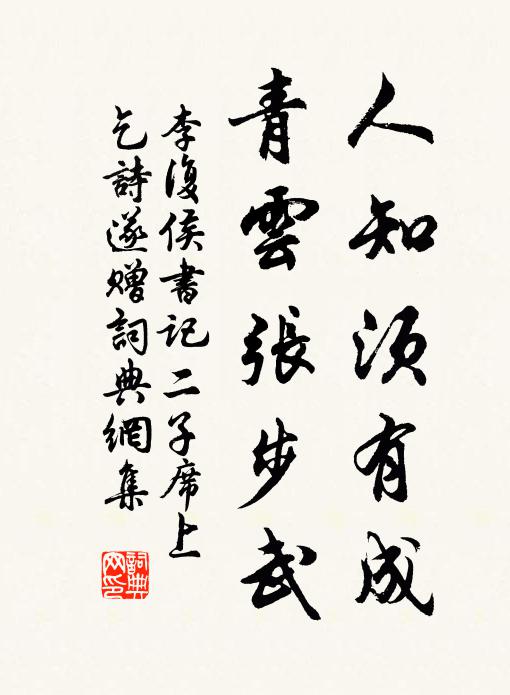 人知須有成
青雲張步武
李復侯書記二子席上
乞詩遂贈詞典網集
詞典
网印